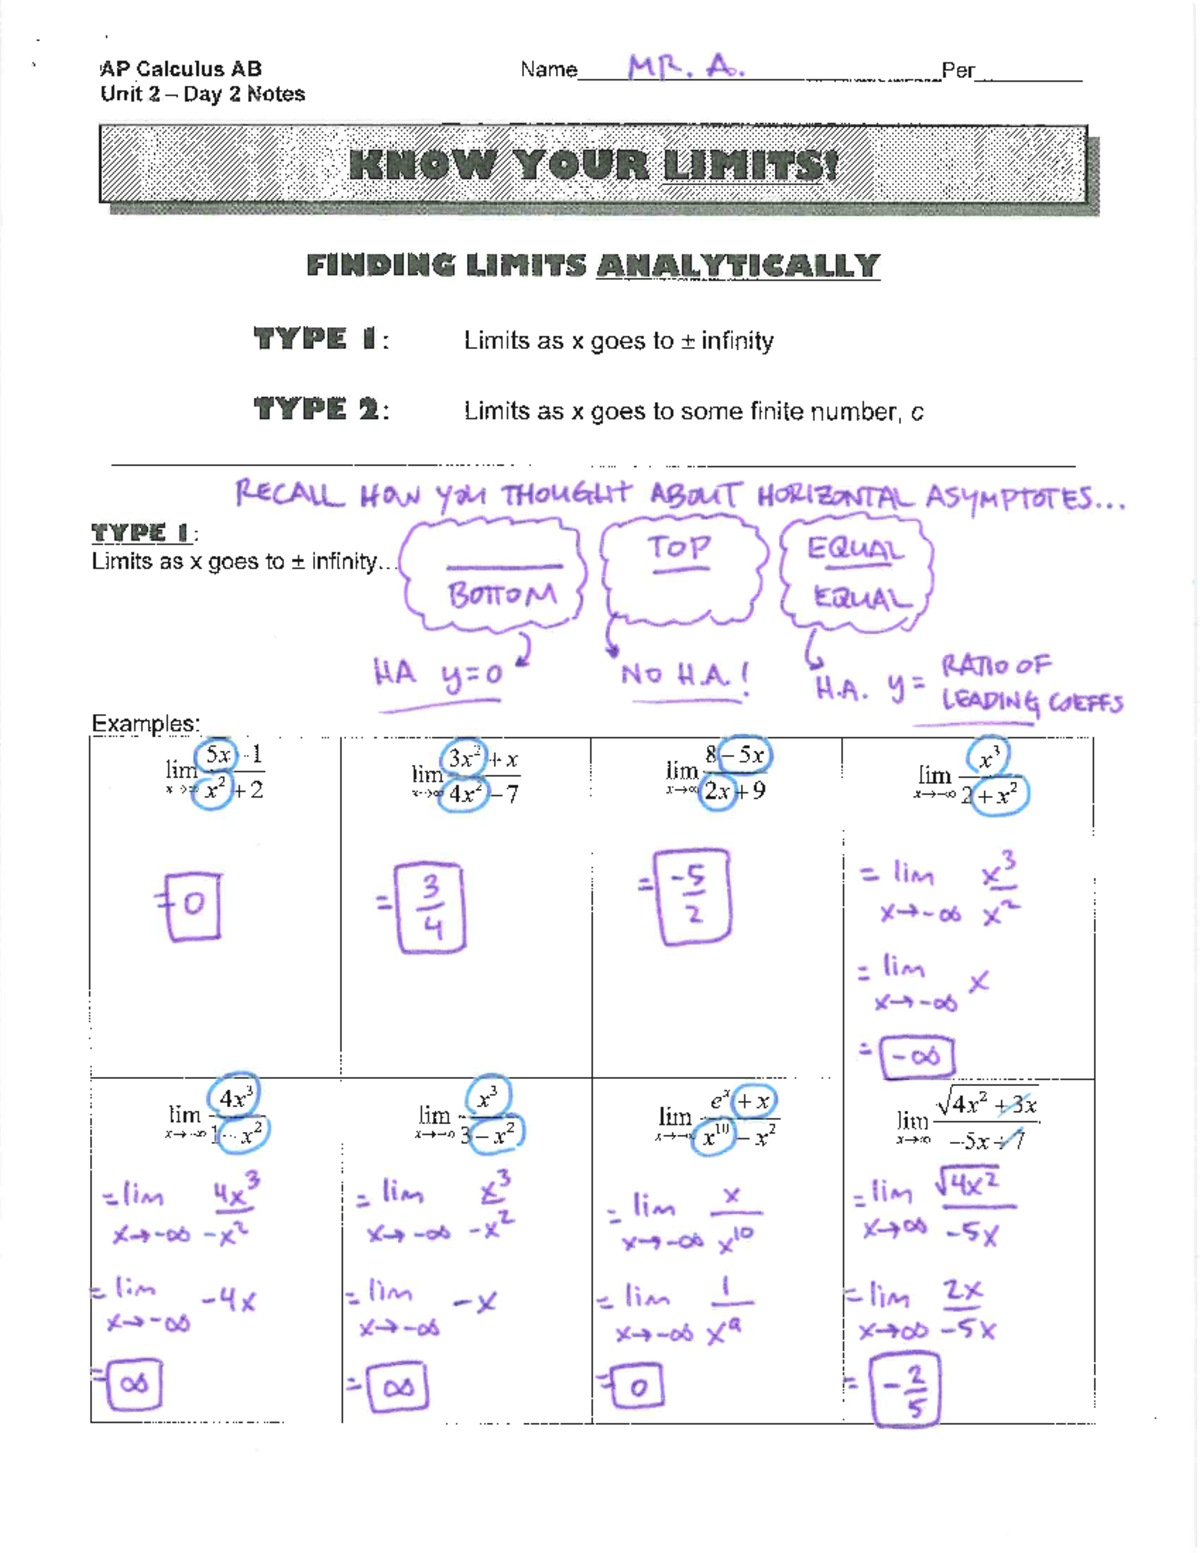 AP Calculus AB Name MR. A. Per
Unit 2 – Day 2 Notes
KNOW YOUR LIMITS!
FINDING LIMITS ANALYTICALLY
TYPE 1: Limits as x goes to ± infinity
TYPE 2: Limits as x goes to some finite number, c
RECALL HOW YOU THOUGHT ABOUT HORIZONTAL ASYMPTOTES...
TYPE 1:
Limits as x goes to ± infinity...
BOTTOM
TOP
EQUAL
EQUAL
HA y=0
NO H.A.!
H.A. y= RATIO OF
LEADING COEFFS
Examples:
lim 5x - 1 / x² + 2
= 0
lim x→∞ 3x² + x / 4x² – 7
= 3/4
lim x→∞ 8 – 5x / 2x + 9
= -5/2
lim x→-∞ x³ / 2 + x²
= lim x→-∞ x³/x²
= lim x→-∞ x
= -∞
lim x→-∞ 4x³ / 1 - x²
= lim x→-∞ 4x³/-x²
= lim x→-∞ -4x
= ∞
lim x→-∞ x³ / 3 – x²
= lim x→-∞ x³/-x²
= lim x→-∞ -x
= ∞
lim x→-∞ eˣ + x / x¹⁰ – x²
= lim x→-∞ x/x¹⁰
= lim x→-∞ 1/x⁹
= 0
lim x→∞ √4x² + 3x / –5x + 7
= lim x→∞ √4x²/-5x
= lim x→∞ 2x/-5x
= -2/5